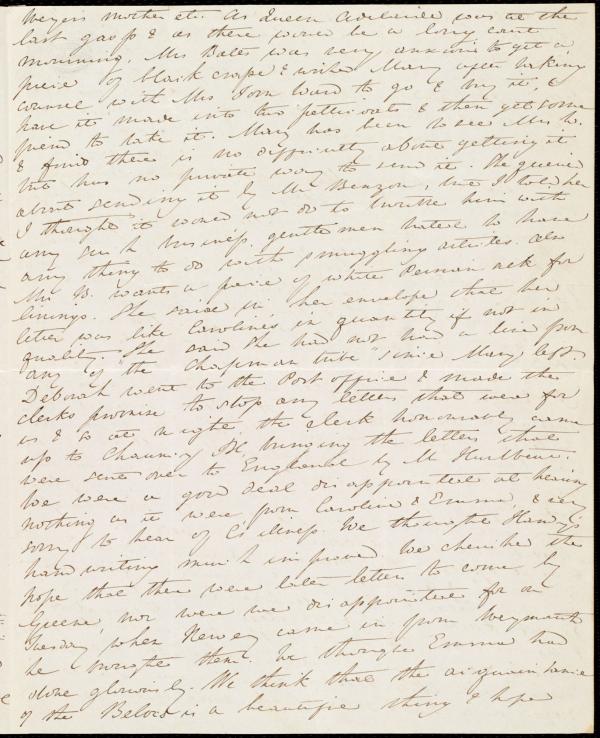 mother etc. As Queen Adelaide was at the
last gasp & as there would be a long court
mourning, Mrs Bates was very anxious to get a
piece of black crape & wished Mary after taking
counsel with Mrs Tom Ward to go & buy it, &
have it made into two petticoats & then get some
to take it. Mary has been to see Mrs W.
& finds there is no difficulty about getting it
but has no private way to send it. She queried
about sending it by Mr Benzon, but I told her
I thought it would not do to trouble him with
any such business, gentlemen hate to have
any thing to do with smuggling articles. Also
Mrs B. wants a piece of white Persian silk for
linings. She said in her envelope that her
letter was like Caroline's in quantity if not in
quality. She said she had not had a line from
any of "the Chapman tribe" since Mary left.
Deborah went to the Post office & made the
clerks promise to stop any letters that were for
us & so at night the clerk honourably came
up to Chauncy Pl. bringing the letters that
were sent over to England by M Hurlbut.
We were a good deal disappointed at hearing
nothing as it were from Caroline & Emma, & very
sorry to hear of C's illness. We thought
hand writing much improved. We cherished the
hope that there were later letters to come by
Greene, nor were we disappointed for on
Tuesday when Hervey came in from Weymouth
he brought them. We thought Emma had
done gloriously. We think that the acquaintance
of the is a beautiful thing & hope